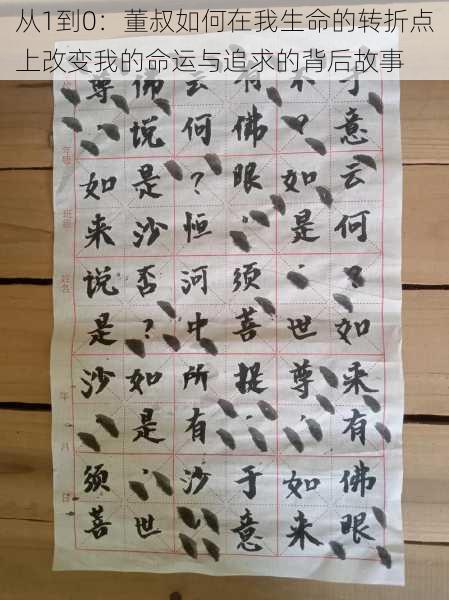 从1到0：董叔如何在我生命的转折点
上改变我的命运与追求的背后故事
于意云何？如来有佛眼
不？如是：世尊：如来
有佛眼：须菩提：于意
云何？恒河中所有沙：
佛说是沙否？如是：世
尊：如来说是沙：须菩
年级
班级
姓名
年
月
日